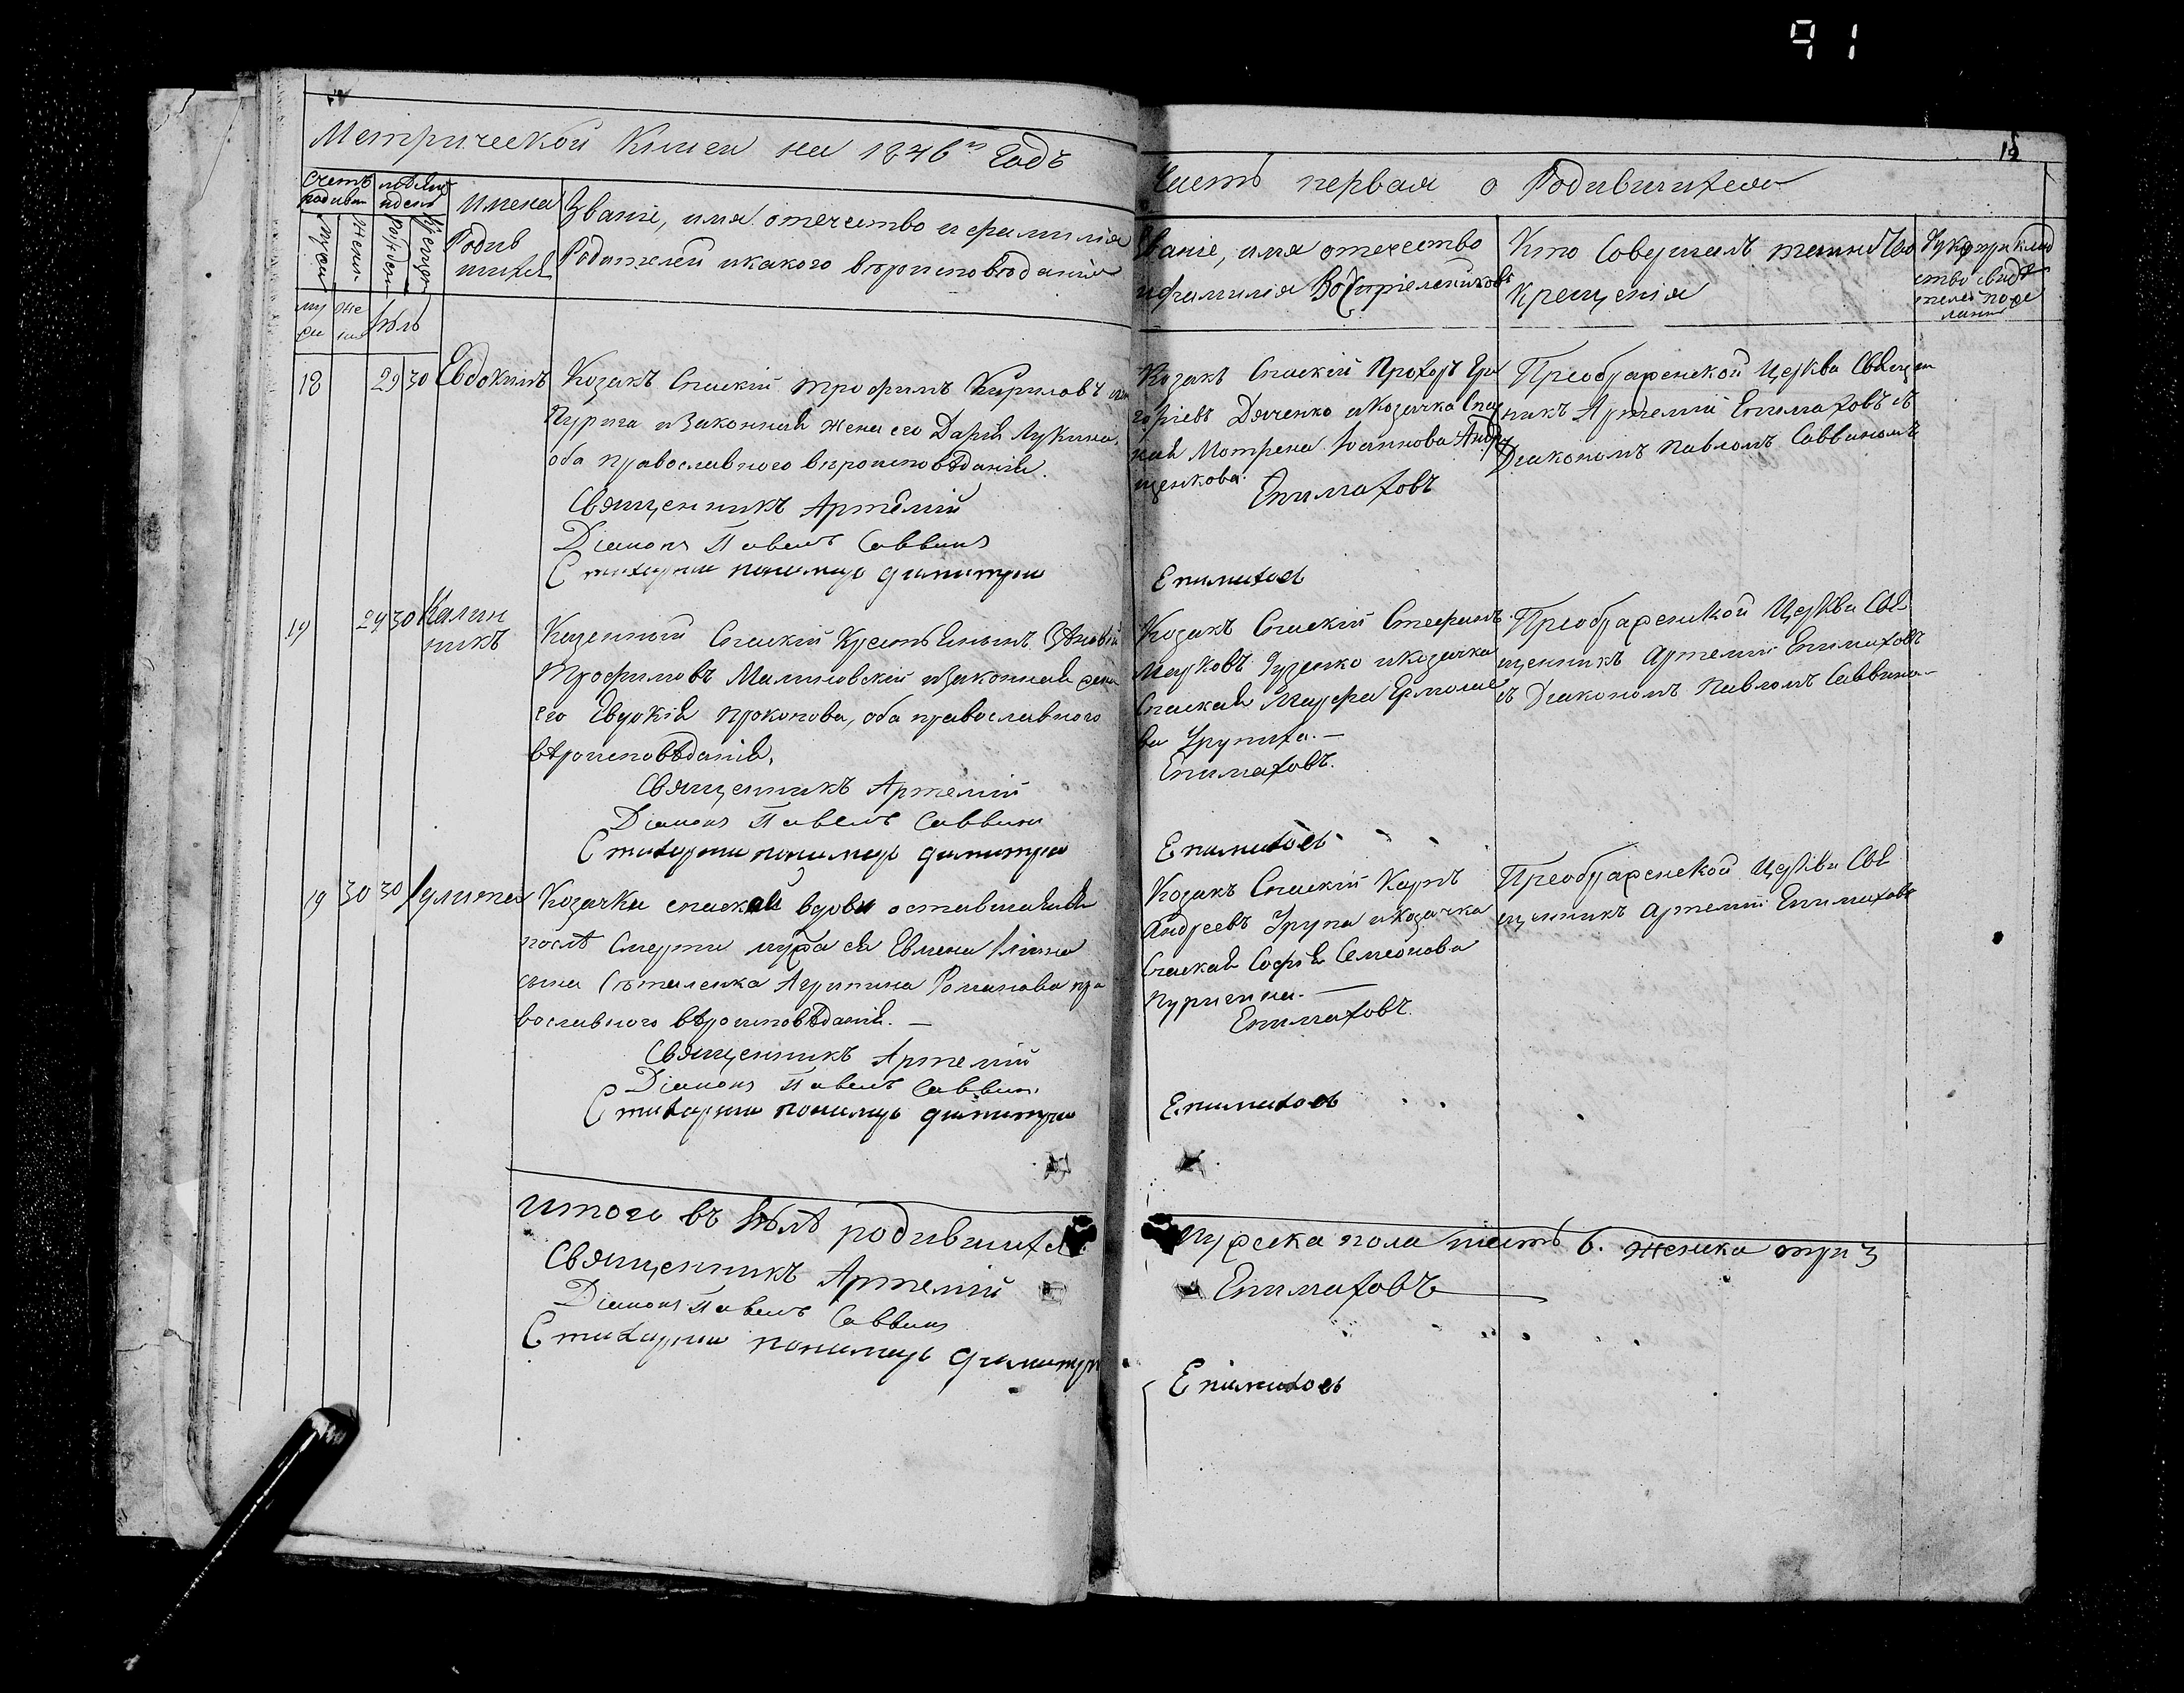 91
15
Метрической Книги на 1846й Годъ
Часть первая о Родившихся
Счетъ родивш
мѣсяцъ и день
Имена Родив шихся
Званіе, имя отечество и фамилія
Родителей и какого вѣроисповѣданія
Званіе, имя отечество
и фамилія Воспріемниковъ
Кто Совершалъ таинство
Крещенія
Рукоприклад
ство свидѣ
телей по же
ланію
муж жен рожден крещен
му же
Іюль
18 29 30 Евдокимъ
Козакъ Спаскій Трофимъ Кириловъ
Пурига и Законная жена его Дарія Лукина,
оба православного вѣроисповѣданія.
Священникъ Артемій
Діаконъ Павелъ Саввинъ
Стихарни пономарь димитри
Козакъ Спаскій Прохоръ Гри
горіевъ Дяченко и Козачка Спас
кая Мотрена Іоаннова Андр
щенкова.
Епимаховъ
Епимахов
Преображенской Церкви Священ
никъ Артемій Епимаховъ съ
Діакономъ Павломъ Саввиномъ
19 29 30 Калин
никъ
Казенный Спаскій Крестьянинъ Зѣновій
Трофимовъ Малиновскій и Законная жена
его Евдокія Прокопова, оба православного
вѣроисповѣданія.
Священникъ Артемій
Діаконъ Павелъ Саввинъ
Стихарни пономарь димитри
Козакъ Спаскій Стефанъ
Марковъ Гузенко и козачка
Спаская Марфа Ермолае
ва Групиха.—
Епимаховъ.
Епимахов
Преображенской Церкви Свя
щенникъ Артемій Епимаховъ
съ Діакономъ Павломъ Саввина—
19 30 30 Іулита
Козачки спаской вдовы оставшаяся
послѣ Смерти мужа ея Евмена
сына Агрипина Романова пра
вославного вѣроисповѣданія.—
Священникъ Артемій
Діаконъ Павелъ Саввинъ
Стихарни пономарь димитри
Козакъ Спаскій Карпъ
Андреевъ Група и Козачка
Спаская Софія Семіонова
Пуригина.—
Епимаховъ.
Епимахов
Преображенской Церкви Свя
щенникъ Артемій Епимаховъ
Итого въ Іюлѣ родившихся
мужеска пола шесть 6. женска три 3
Священникъ Артемій
Епимаховъ
Діаконъ Павелъ Саввинъ
Стихарни пономарь димитри
Епимахов